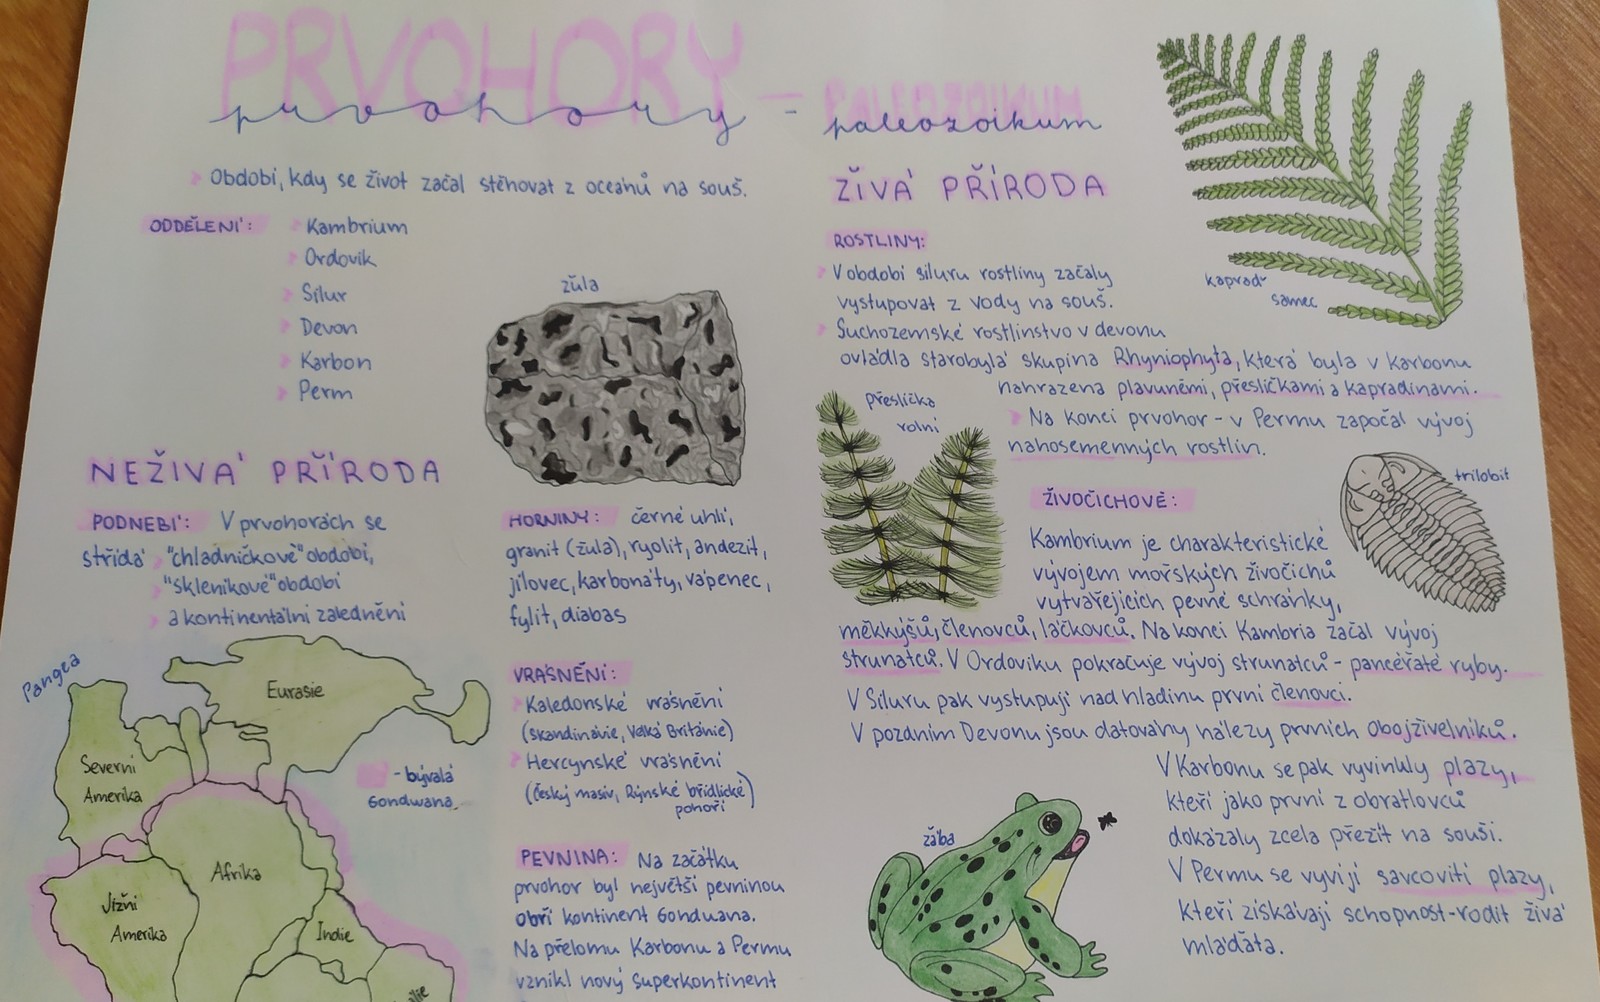 PRVOHORY - PALEOZOIKUM
prvohory - paleozoikum
Období, kdy se život začal stěhovat z oceánů na souš.
ODDĚLENÍ:
Kambrium
Ordovik
Silur
Devon
Karbon
Perm
žula
NEŽIVÁ PŘÍRODA
PODNEBÍ: V prvohorách se
střídá "chladničkové" období,
"skleníkové" období
a kontinentální zalednění
Pangea
Eurasie
Severní
Amerika
- bývalá
Gondwana
Afrika
Jižní
Amerika
Indie
HORNINY: černé uhlí,
granit (žula), ryolit, andezit,
jílovec, karbonáty, vápenec,
fylit, diabas
VRÁSNĚNÍ:
Kaledonské vrásnění
(Skandinávie, Velká Británie)
Hercynské vrásnění
(český masiv, Rýnské břidlické
pohoří)
PEVNINA: Na začátku
prvohor byl největší pevninou
obří kontinent Gondwana.
Na přelomu Karbonu a Permu
vznikl nový superkontinent
ŽIVÁ PŘÍRODA
ROSTLINY:
V období siluru rostliny začaly
vystupovat z vody na souš.
Suchozemské rostlinstvo v devonu
ovládla starobylá skupina Rhyniophyta, která byla v Karbonu
nahrazena plavuněmi, přesličkami a kapradinami.
Na konci prvohor - v Permu započal vývoj
nahosemenných rostlin.
kapraď
samec
přeslička
rolní
trilobit
ŽIVOČICHOVÉ:
Kambrium je charakteristické
vývojem mořských živočichů
vytvářejících pevné schránky,
měkkýšů, členovců, láčkovců. Na konci Kambria začal vývoj
strunatců. V Ordoviku pokračuje vývoj strunatců - pancéřaté ryby.
V Siluru pak vystupují nad hladinu první členovci.
V pozdním Devonu jsou datovány nálezy prvních obojživelníků.
V Karbonu se pak vyvinuly plazy,
kteří jako první z obratlovců
dokázaly zcela přežít na souši.
V Permu se vyvíjí savcovití plazy,
kteří získávají schopnost - rodit živá
mláďata.
žába